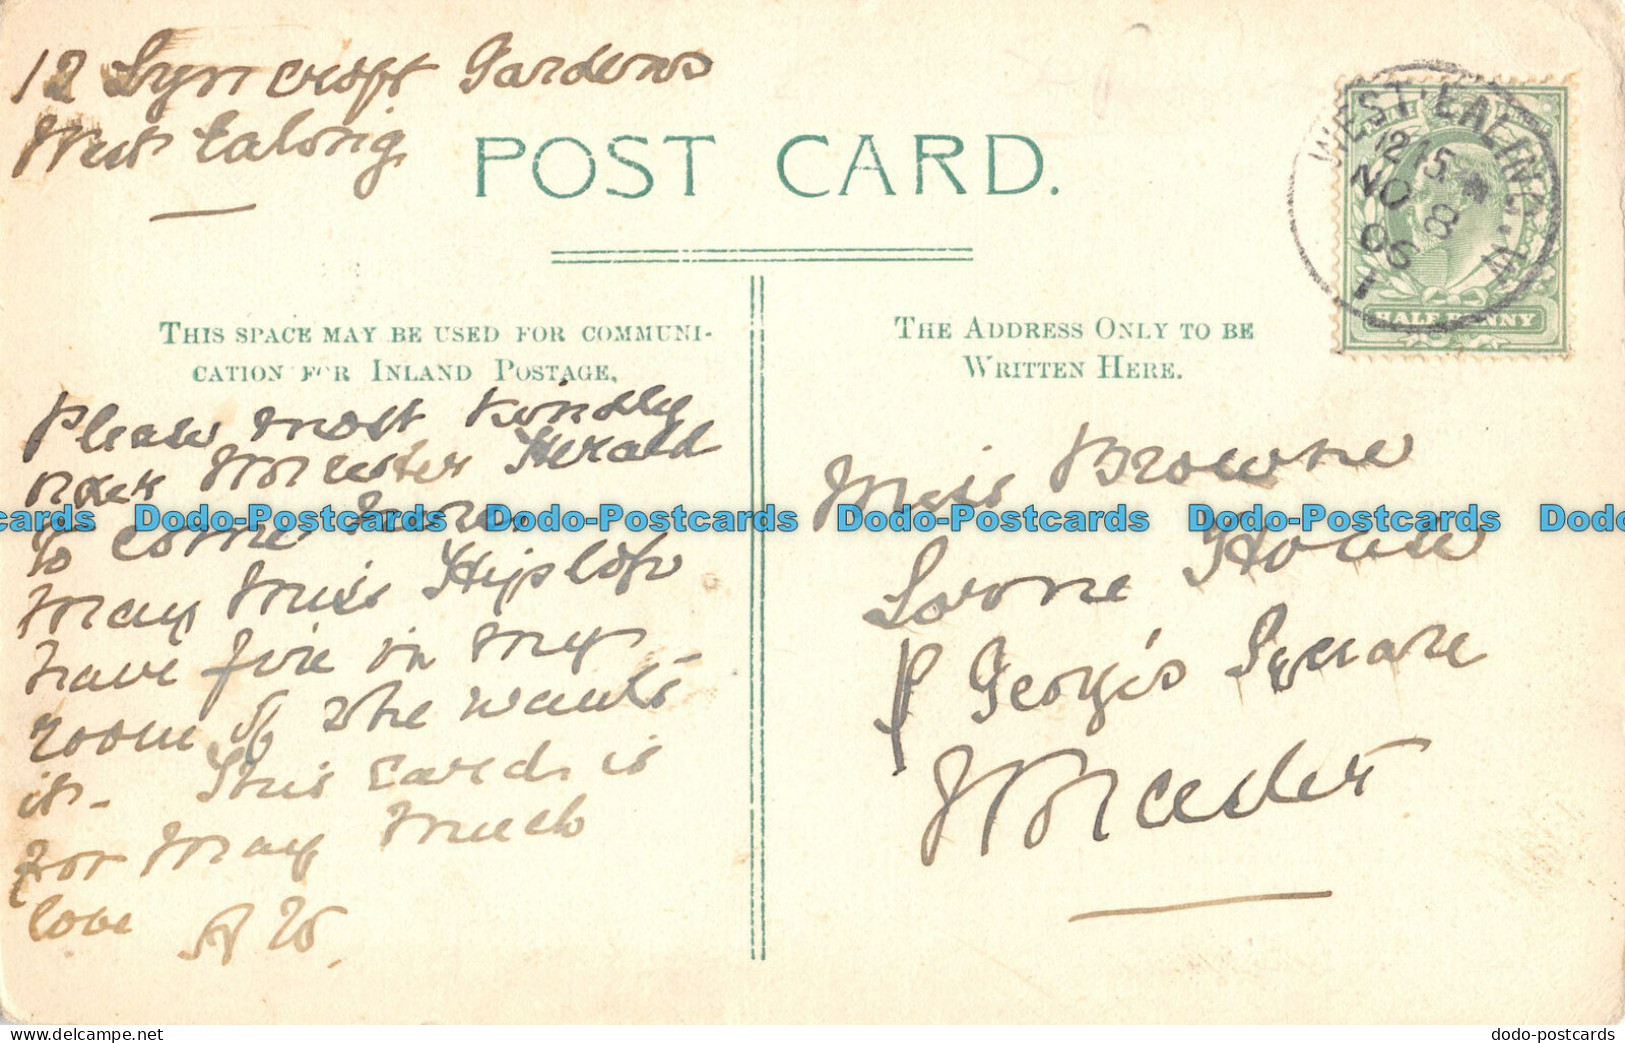 12 Lyncroft Gardens
West Ealing
POST CARD.
WEST·EALING.W
12 15
NO 8
06
HALF PENNY
THIS SPACE MAY BE USED FOR COMMUNI-
CATION FOR INLAND POSTAGE.
THE ADDRESS ONLY TO BE
WRITTEN HERE.
Please most kindly
Worcester Herald
to come here.
May Miss Hyslop
have fire in my
room if she wants
it. This card is
for May Much
love A W.
Miss Browne
Lorne House
George's Square
Worcester
cards Dodo-Postcards Dodo-Postcards Dodo-Postcards Dodo-Postcards Dodo
Delcampe.net
dodo-postcards